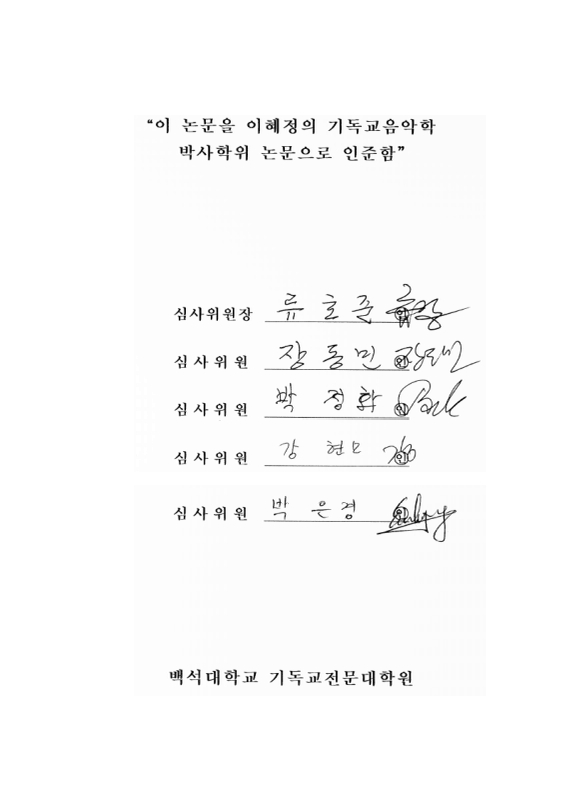 “이 논문을 이혜정의 기독교음악학
박사학위 논문으로 인준함”
심사위원장 류호준 ㊞
심사위원 장동민 ㊞
심사위원 박정화 ㊞
심사위원 강현모 ㊞
심사위원 박은경 ㊞
백석대학교 기독교전문대학원